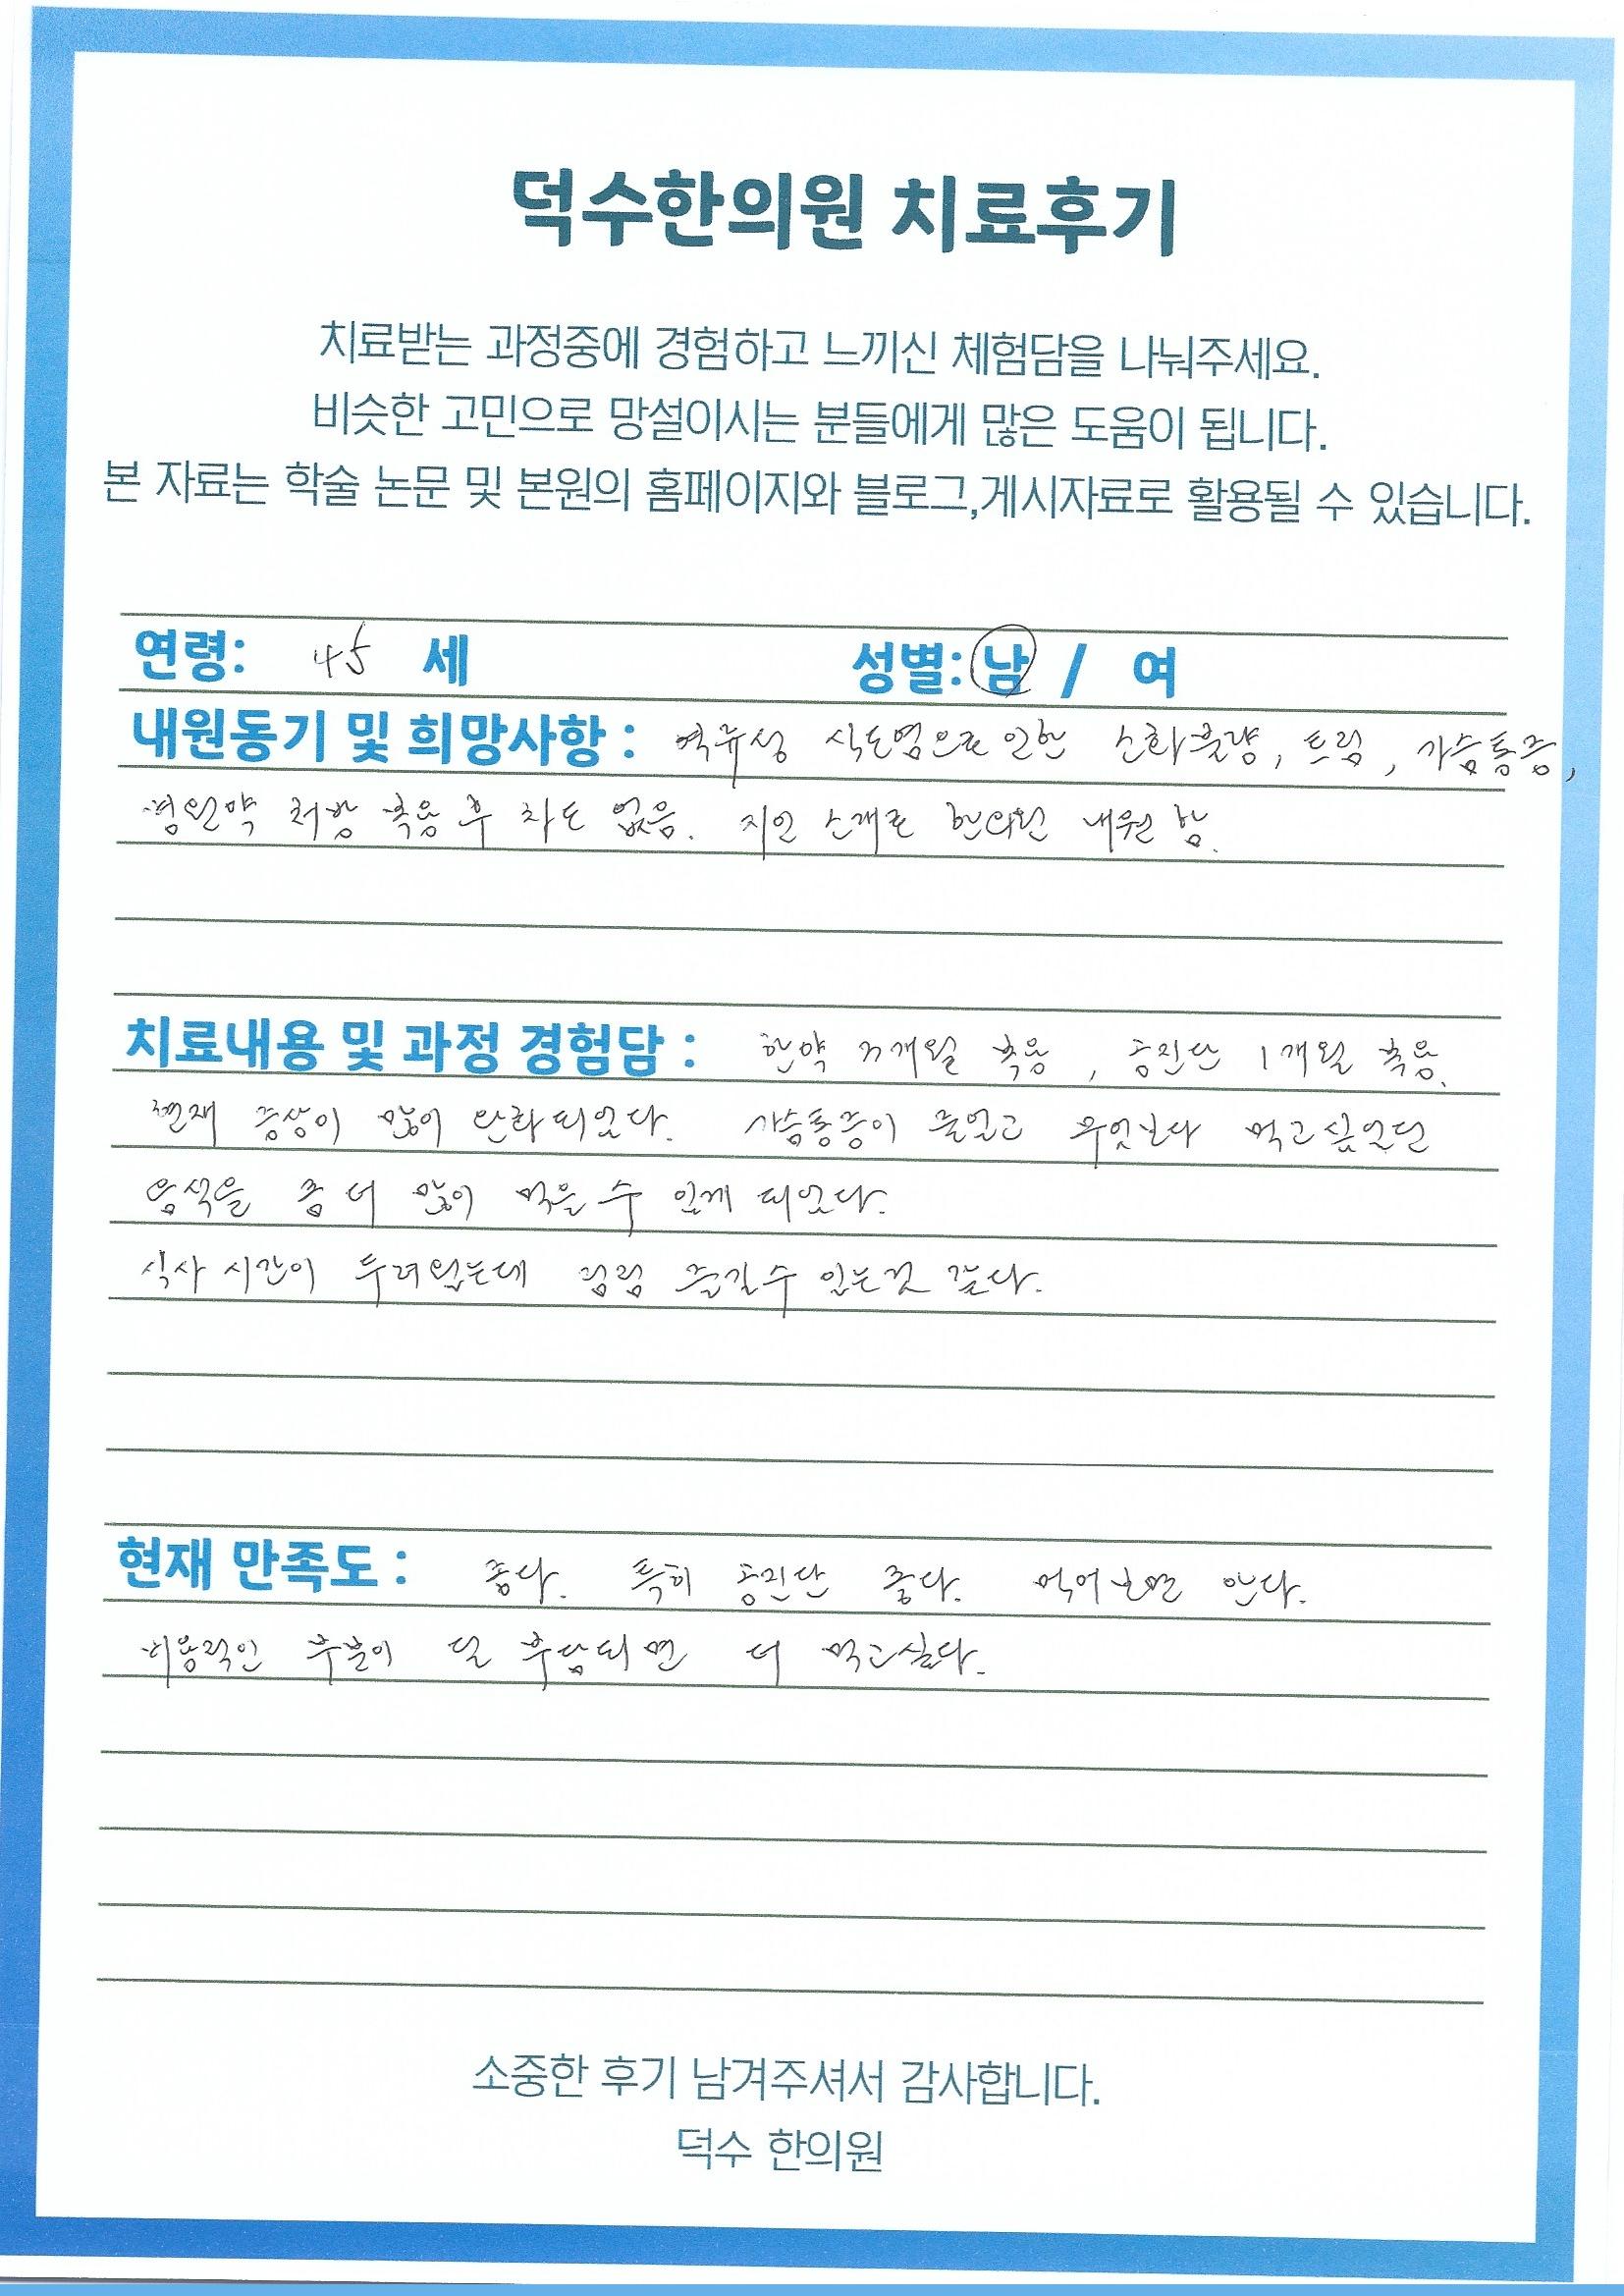 덕수한의원 치료후기
치료받는 과정중에 경험하고 느끼신 체험담을 나눠주세요.
비슷한 고민으로 망설이시는 분들에게 많은 도움이 됩니다.
본 자료는 학술 논문 및 본원의 홈페이지와 블로그,게시자료로 활용될 수 있습니다.
연령: 45 세 성별: 남 / 여
내원동기 및 희망사항 : 역류성 식도염으로 인한 소화불량, 트림, 가슴통증,
병원약 처방 복용 후 차도 없음. 지인 소개로 한의원 내원 함.
치료내용 및 과정 경험담 : 한약 개월 복용, 공진단 1개월 복용.
현재 증상이 많이 완화되었다. 가슴통증이 줄었고 무엇보다 먹고싶었던
음식을 좀 더 많이 먹을 수 있게 되었다.
식사 시간이 두려웠는데 점점 즐길수 있는것 같다.
현재 만족도 : 좋다. 특히 공진단 좋다. 먹어보면 안다.
비용적인 부분이 덜 부담되면 더 먹고싶다.
소중한 후기 남겨주셔서 감사합니다.
덕수 한의원